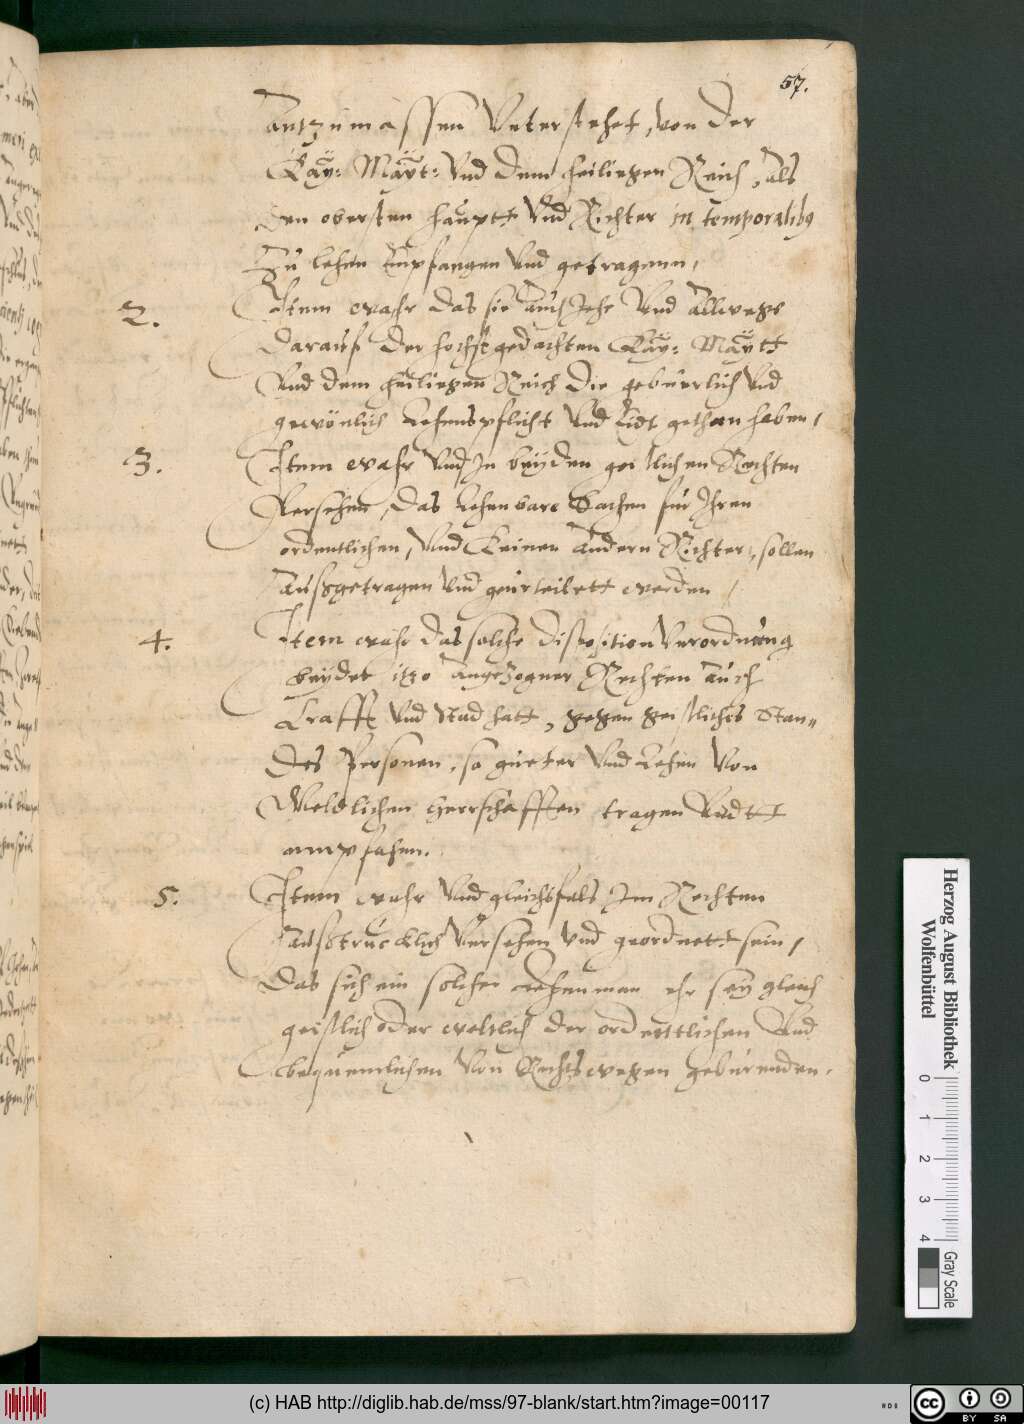 57.
antzumassen Unterstehet, von der
Kay: Maÿt: Vnd dem heiligen Reich, als
den obersten haupt Vnd Richter in temporalibus
Zu lehen Empfangen Vnd getragenn,
2. Item wahr das sie auch Jehe Vnd Allwege
darauf der hochstgedachten Kaÿ: Maÿtt
Vnd dem heiligen Reich die gebuerlich Vnd
gewönlich Lehenspflicht Vnd Eidt gethan haben,
3. Item wahr Vnd Jn beyden geistlichen Rechten
Versehen, das Lehenbare Sachen für Ihren
ordentlichen, Vnd Keinen Andern Richter, sollen
Außgetragen Vnd geurteilett werden,
4. Item wahr das solche disposition Verordnung
beyder itzo Angezogner Rechten auch
Krafft Vnd Stad hatt, gegen geistlichs Stan=
des Personen, so gueter Vnd Lehen Von
Weldlichen Herrschafften tragen Vndtt
empfahen.
5. Item wahr Vnd gleichsfals Jm Rechten
Außtrucklich Versehen Vnd geordnett sein,
das sich ein solcher Lehenman ehr sey gleich
geistlich oder weltlich der ordenttlichen Vnd
bequemlichen Von Rechtswegen geburenden.
Herzog August Bibliothek
Wolfenbüttel
0 1 2 3 4
Gray Scale
(c) HAB http://diglib.hab.de/mss/97-blank/start.htm?image=00117
cc BY SA